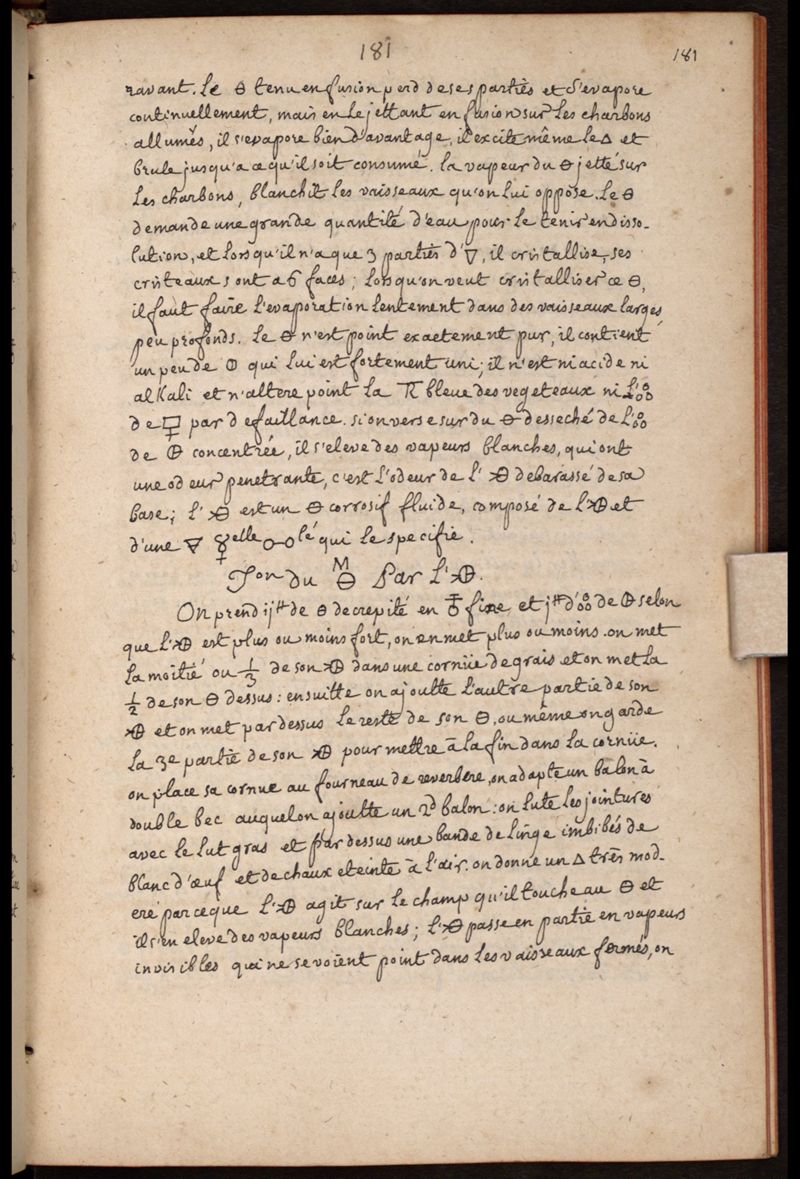 181
181
ravant. Le ⊖ tenu en fusion perd de ses partiès et s'evapore
continuellement, mais en le jettant en fusion sur les charbons
allumés, il s'evapore bien d'avantage, il excite même le △ et
brule jusqu'a ce qu'il soit consumé. la vapeur du ⊖ jette sur
les charbons, blanchit les vaisseaux qu'on lui oppose. Le ⊖
demande une grande quantité d'eau pour le tenir en disso-
lution, et lorsqu'il n'a que 3 partiès d'▽, il cristallise, ses
cristeaux sont a 6 faces; lorsqu'on veut cristalliser ce ⊖,
il faut faire l'evaporation lentement dans des vaisseaux larges
peu profonds. Le ⊖ n'est point exactement pur, il contient
un peu de qui lui est fortement uni; il n'est ni acide ni
alkali et n'altere point la bleue des vegeteaux ni l'
de par defaillance. si on verse sur du ⊖ desseché de l'
de concentrée, il s'eleve des vapeurs blanches, qui ont
une odeur penetrante, c'est l'odeur de l' debarassé de sa
base; l' est un ⊖ corrosif fluide, composé de l' et
d'une ▽ ☿elle lé qui le specifie.
Jon du ⊖ Par l'.
On prend ij de ⊖ decrepité en fine et j d' de selon
que l' est plus ou moins fort, on en met plus ou moins. on met
la moitié ou 1/3 de son dans une cornüe de grais et on met la
1/2 de son ⊖ dessus: ensuitte on ajoutte l'autre partie de son
et on met par dessus le reste de son ⊖, ou même on garde
la 3e partie de son pour mettre à la fin dans la cornüe.
on place sa cornue au fourneau de reverbere, on adapte un balon à
double bec auquel on ajoutte un 2d balon: on lute les jointures
avec le lut gras et par dessus une bande de linge imbibés de
blanc d'œuf et de chaux eteinte à l'air. on donne un △ très mod-
eré parceque l' agit sur le champ qu'il touche au ⊖ et
il s'en eleve des vapeurs blanches; l' passe en partie en vapeurs
invisibles qui ne se voient point dans les vaisseaux fermés, on